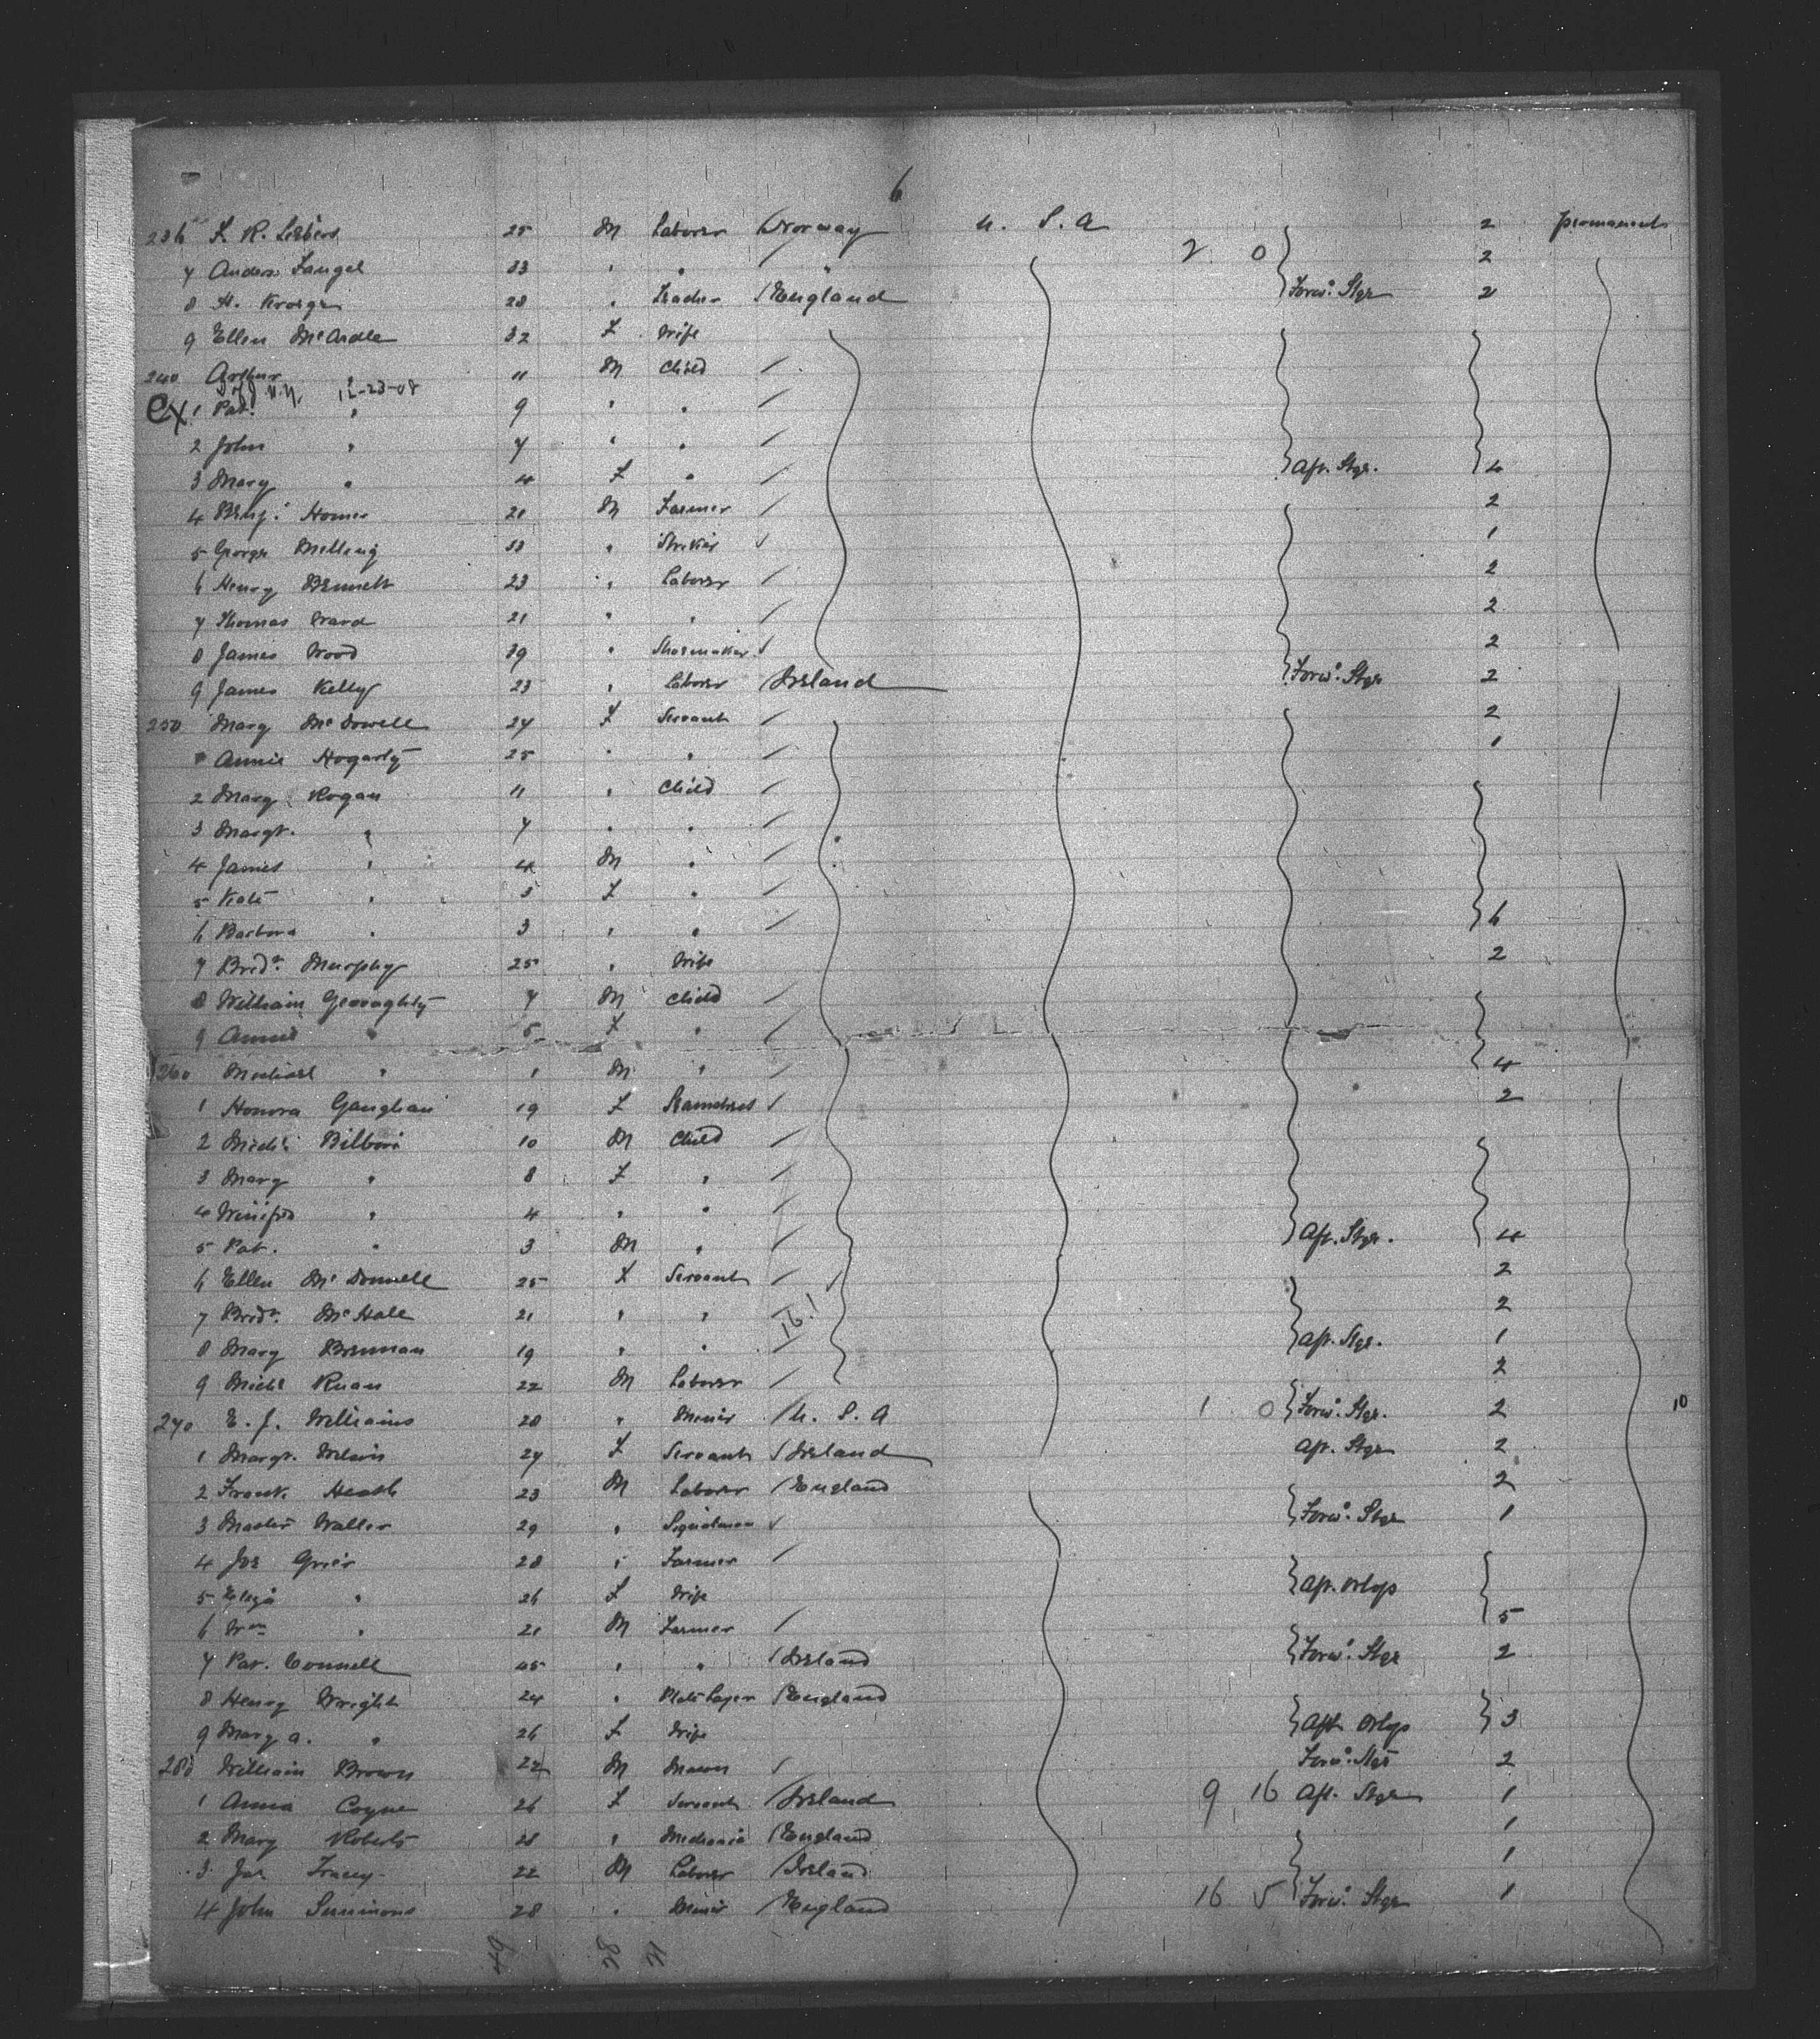 6
236 25 M Laborer Norway U. S. A 2 permanent
7 33 " " " 2 0 2
8 28 " England Forwd. Stge 2
9 Ellen McArdle 32 F Wife
240 Arthur 11 M Child
ex 1 Pat. " 9 " " 12-23-08
2 John " 7 " "
3 Mary " 4 F " Aft. Stge. 4
4 Benj. Homer 21 M Farmer 2
5 George Melling 33 " Striker 1
6 Henry Bennett 23 " Laborer 2
7 Thomas Ward 21 " " 2
8 James Wood 39 " Shoemaker 2
9 James Kelly 23 " Laborer Ireland Forwd. Stge 2
250 Mary McDowell 24 F Servant 2
Annie Hogarty 25 " " 1
2 Mary Rogan 11 " Child
3 Margt. " 7 " "
4 James " 4 M "
5 Kate " 3 F "
6 Barbara " 3 " " 6
7 Bridt. Murphy 25 " Wife 2
8 William Geraughty 7 M Child
9 Annie " 5 F "
260 Michael " 1 M " 4
1 Honora Gaughan 19 F 2
2 Michl. 10 M Child
3 Mary " 8 F "
4 Winifred " 4 " "
5 Pat. " 3 M " Aft. Stge. 4
6 Ellen McDonnell 25 F Servant 2
7 Bridt. McHale 21 " " 2
8 Mary Brennan 19 " " Aft. Stge. 1
9 Michl Ruan 22 M Laborer 2
270 E. J. Williams 28 " Miner U. S. A 1 0 Forwd. Stge. 2 10
1 Margt. 24 F Servant Ireland Aft. Stge 2
2 Frank Heath 23 M Laborer England 2
3 Waller 29 " Signalman Forwd. Stge 1
4 Jos Grier 28 " Farmer
5 Eliza " 26 F Wife Aft. Orlop
6 Wm " 21 M Farmer 5
7 Pat. Connell 45 " " Ireland Forwd. Stge 2
8 Henry Wright 24 " Plate Layer England
9 Mary A. " 26 F Wife Aft Orlop 3
280 William Brown 22 M Mason Forwd. Stge 2
1 Anna Coyne 26 F Servant Ireland 9 16 Aft. Stge 1
2 Mary Roberts 28 " England 1
3 Jas Tracey 22 M Laborer Ireland 1
4 John Simmons 28 " Miner England 16 5 Forwd. Stge 1